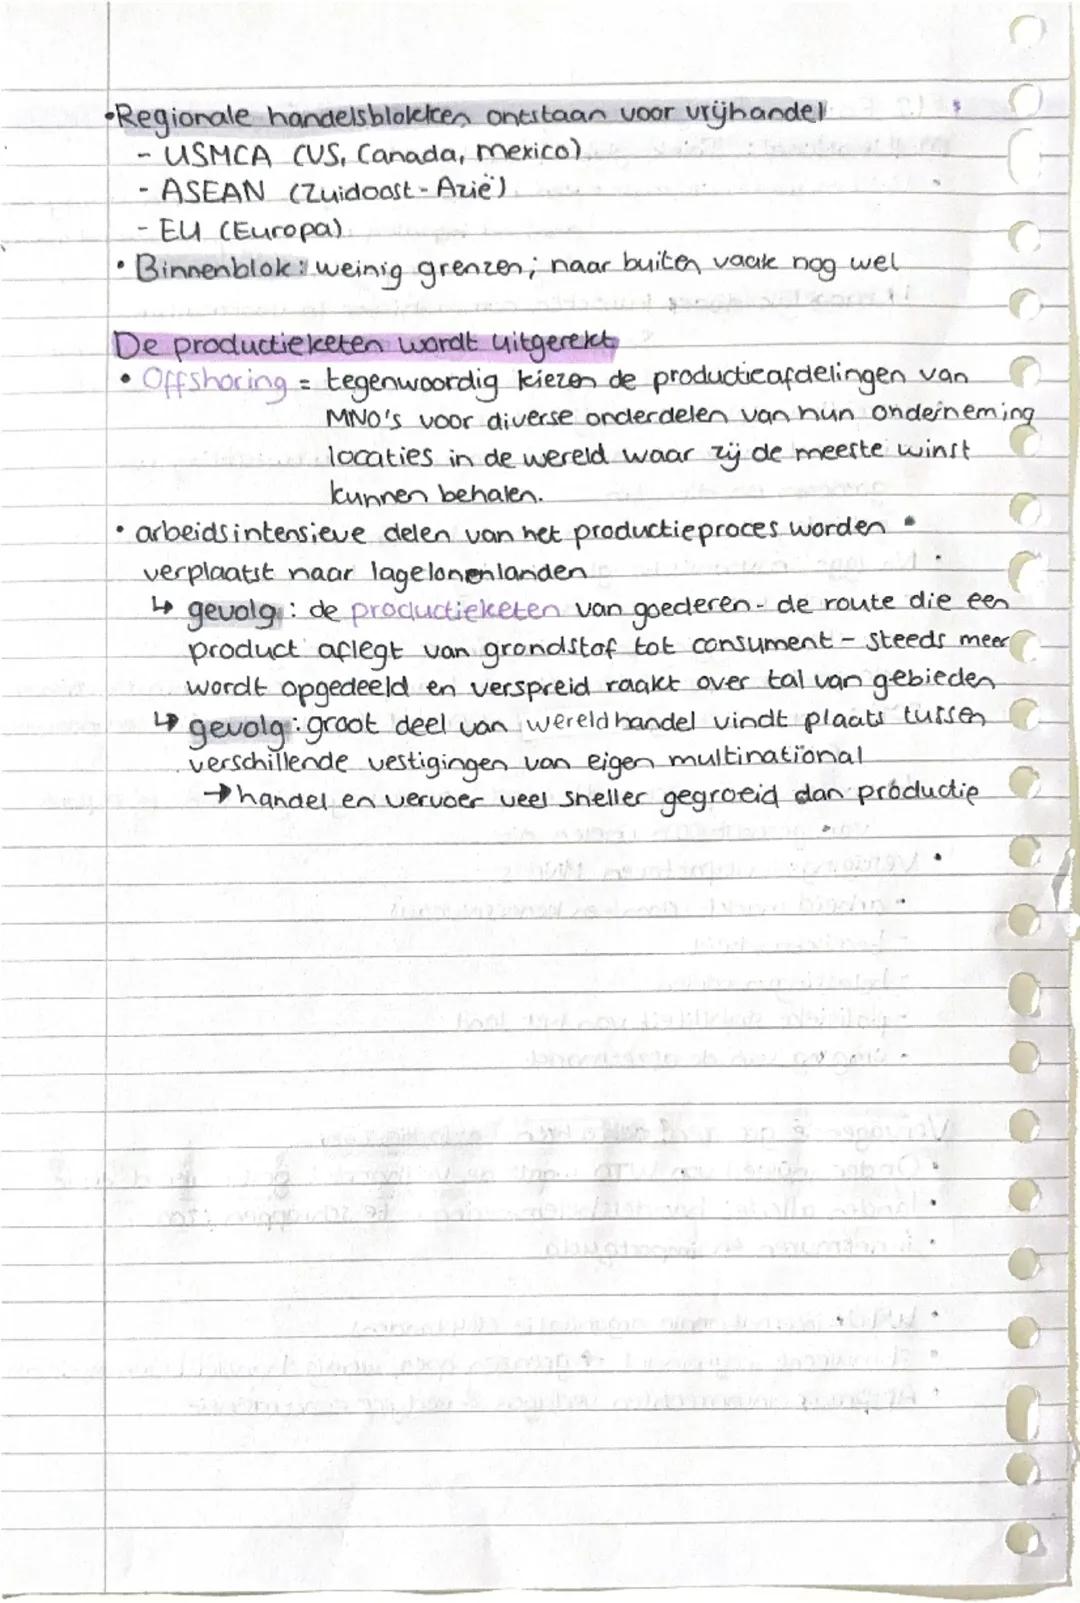 •Regionale handelsblokken ontstaan voor vrijhandel
- USMCA (VS, Canada, Mexico)
- ASEAN (Zuidoost-Azië)
- EU (Europa)
• Binnenblok: weinig grenzen; naar buiten vaak nog wel
De productieketen wordt uitgerekt
• Offshoring = tegenwoordig kiezen de productieafdelingen van
MNO's voor diverse onderdelen van hun onderneming
locaties in de wereld waar zij de meeste winst
kunnen behalen.
• arbeidsintensieve delen van het productieproces worden
verplaatst naar lagelonenlanden
↳ gevolg: de productieketen van goederen - de route die een
product aflegt van grondstof tot consument - steeds meer
wordt opgedeeld en verspreid raakt over tal van gebieden
↳ gevolg: groot deel van wereldhandel vindt plaats tussen
verschillende vestigingen van eigen multinational
→ handel en vervoer veel sneller gegroeid dan productie